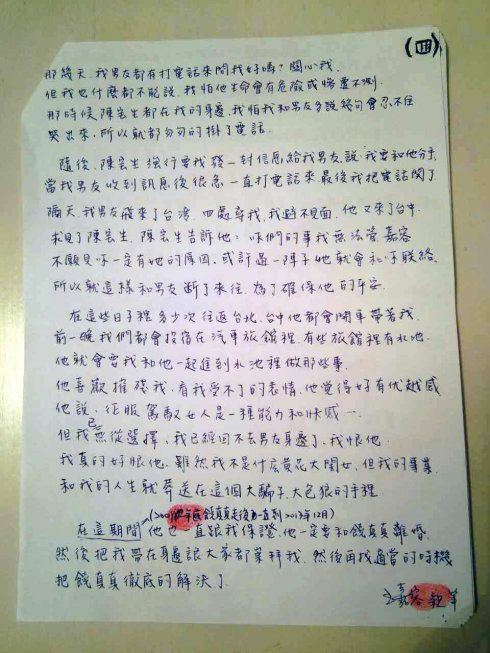 (四)
那幾天.我男友都有打電話來問我好嗎?關心我.
但我也什麼都不能說.我怕他生命會有危險或慘遭不測.
那時候陳宏生都在我的身邊.我怕我和男友多說幾句會忍不住
哭出來.所以就都匆匆的掛了電話.
隨後.陳宏生強行要我發一封信息給我男友說.我要和他分手.
當我男友收到訊息後很急.一直打電話來最後我把電話關了
隔天.我男友飛來了台灣.四處尋我.我避不見面.他又來了台中.
求見了陳宏生.陳宏生告訴他:你們的事我無法管.嘉容
不願見你一定有她的原因.或許過一陣子她就會和你聯絡.
所以就這樣和男友斷了來往.為了確保他的平安.
在這些日子裡多少次往返台北.台中他都會開車帶著我.
前一晚我們都會投宿在汽車旅館裡.有些旅館裡有水池.
他就會要我和他一起進到水池裡做那些事.
他喜歡摧殘我.看我受不了的表情.他覺得好有优越感
他說.征服駕馭女人是一種能力和快感
但我已無從選擇.我已經回不去男友身邊了.我恨他.
我真的好恨他.雖然我不是什広黃花大閨女.但我的事業
和我的人生就葬送在這個大騙子.大色狼的手裡
年底饒真真走後 一直到2013年12月)
在這期間他也一直跟我保證.他一定要和饒真真離婚.
然後把我帶在身邊讓大家都崇拜我.然後再找適當的時機
把饒真真徹底的解決了.
嘉容 親筆